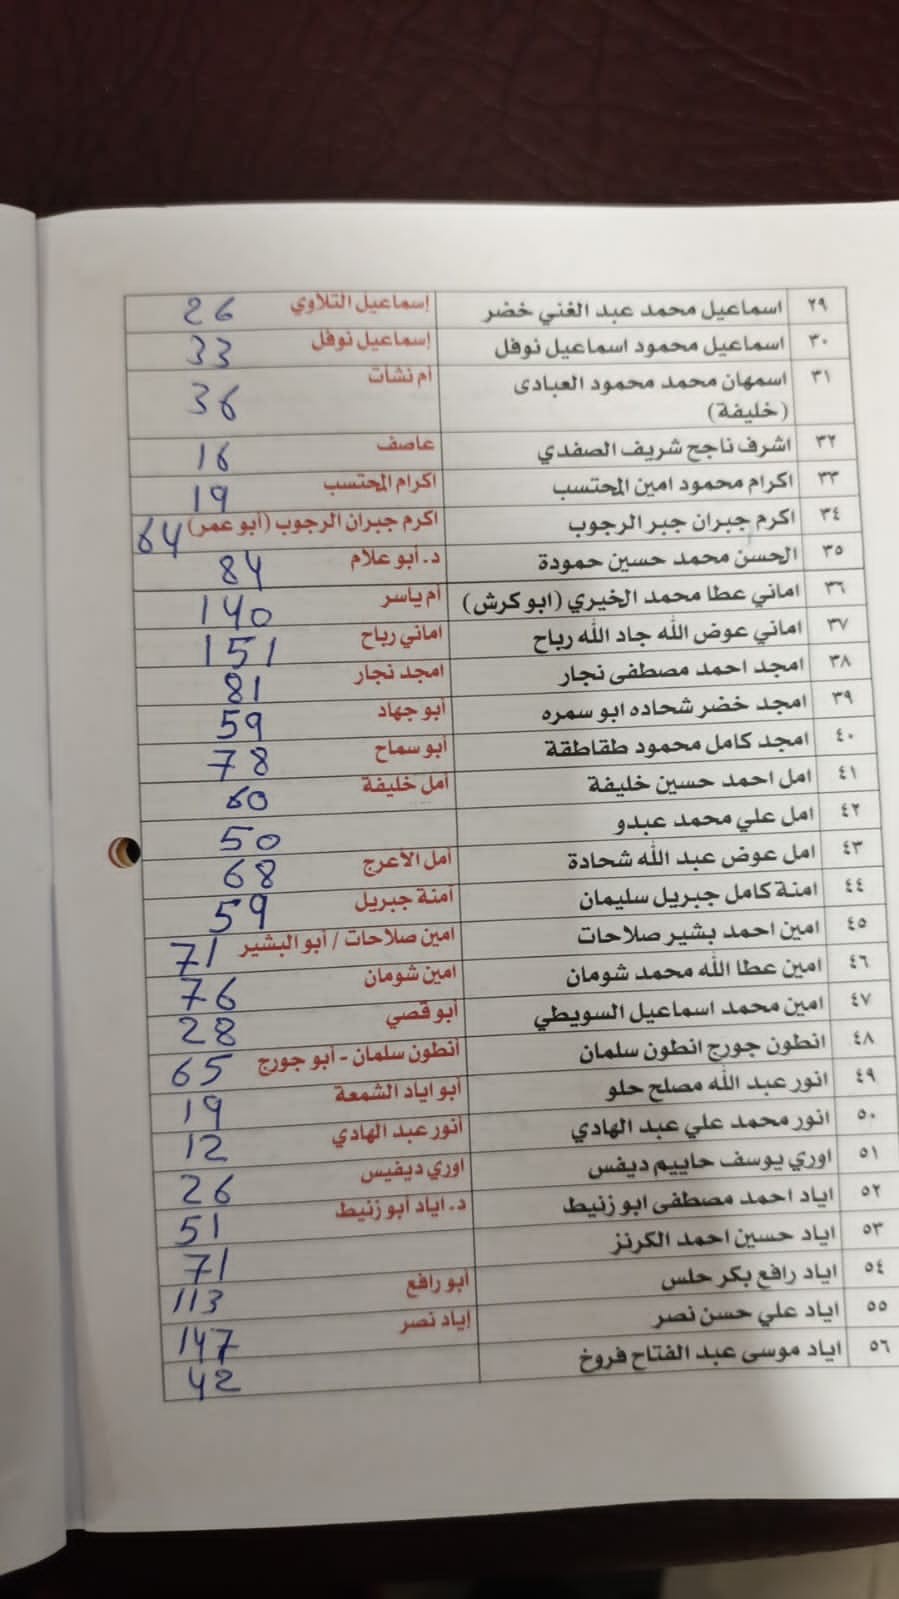 ٢٩ اسماعيل محمد عبد الغني خضر إسماعيل التلاوي 26
٣٠ اسماعيل محمود اسماعيل نوفل إسماعيل نوفل 33
٣١ اسمهان محمد محمود العبادى أم نشأت 36
(خليفة)
٣٢ اشرف ناجح شريف الصفدي عاصف 16
٣٣ اكرام محمود امين المحتسب اكرام المحتسب 19
٣٤ اكرم جبران جبر الرجوب اكرم جبران الرجوب (أبو عمر) 64
٣٥ الحسن محمد حسين حمودة د. أبو علام 84
٣٦ اماني عطا محمد الخيري (ابو كرش) أم ياسر 140
٣٧ اماني عوض الله جاد الله رباح اماني رباح 151
٣٨ امجد احمد مصطفى نجار امجد نجار 81
٣٩ امجد خضر شحاده ابو سمره أبو جهاد 59
٤٠ امجد كامل محمود طقاطقة أبو سماح 78
٤١ امل احمد حسين خليفة أمل خليفة 60
٤٢ امل علي محمد عبدو 50
٤٣ امل عوض عبد الله شحادة أمل الأعرج 68
٤٤ امنة كامل جبريل سليمان آمنة جبريل 59
٤٥ امين احمد بشير صلاحات امين صلاحات / أبو البشير 71
٤٦ امين عطا الله محمد شومان امين شومان 76
٤٧ امين محمد اسماعيل السويطي أبو قصي 28
٤٨ انطون جورج انطون سلمان أنطون سلمان - أبو جورج 65
٤٩ انور عبد الله مصلح حلو أبو اياد الشمعة 19
٥٠ انور محمد علي عبد الهادي أنور عبد الهادي 12
٥١ اوري يوسف حاييم ديفس اوري ديفيس 26
٥٢ اياد احمد مصطفى ابو زنيط د. اياد أبو زنيط 51
٥٣ اياد حسين احمد الكرنز 71
٥٤ اياد رافع بكر حلس أبو رافع 113
٥٥ اياد علي حسن نصر إياد نصر 147
٥٦ اياد موسى عبد الفتاح فروخ 42